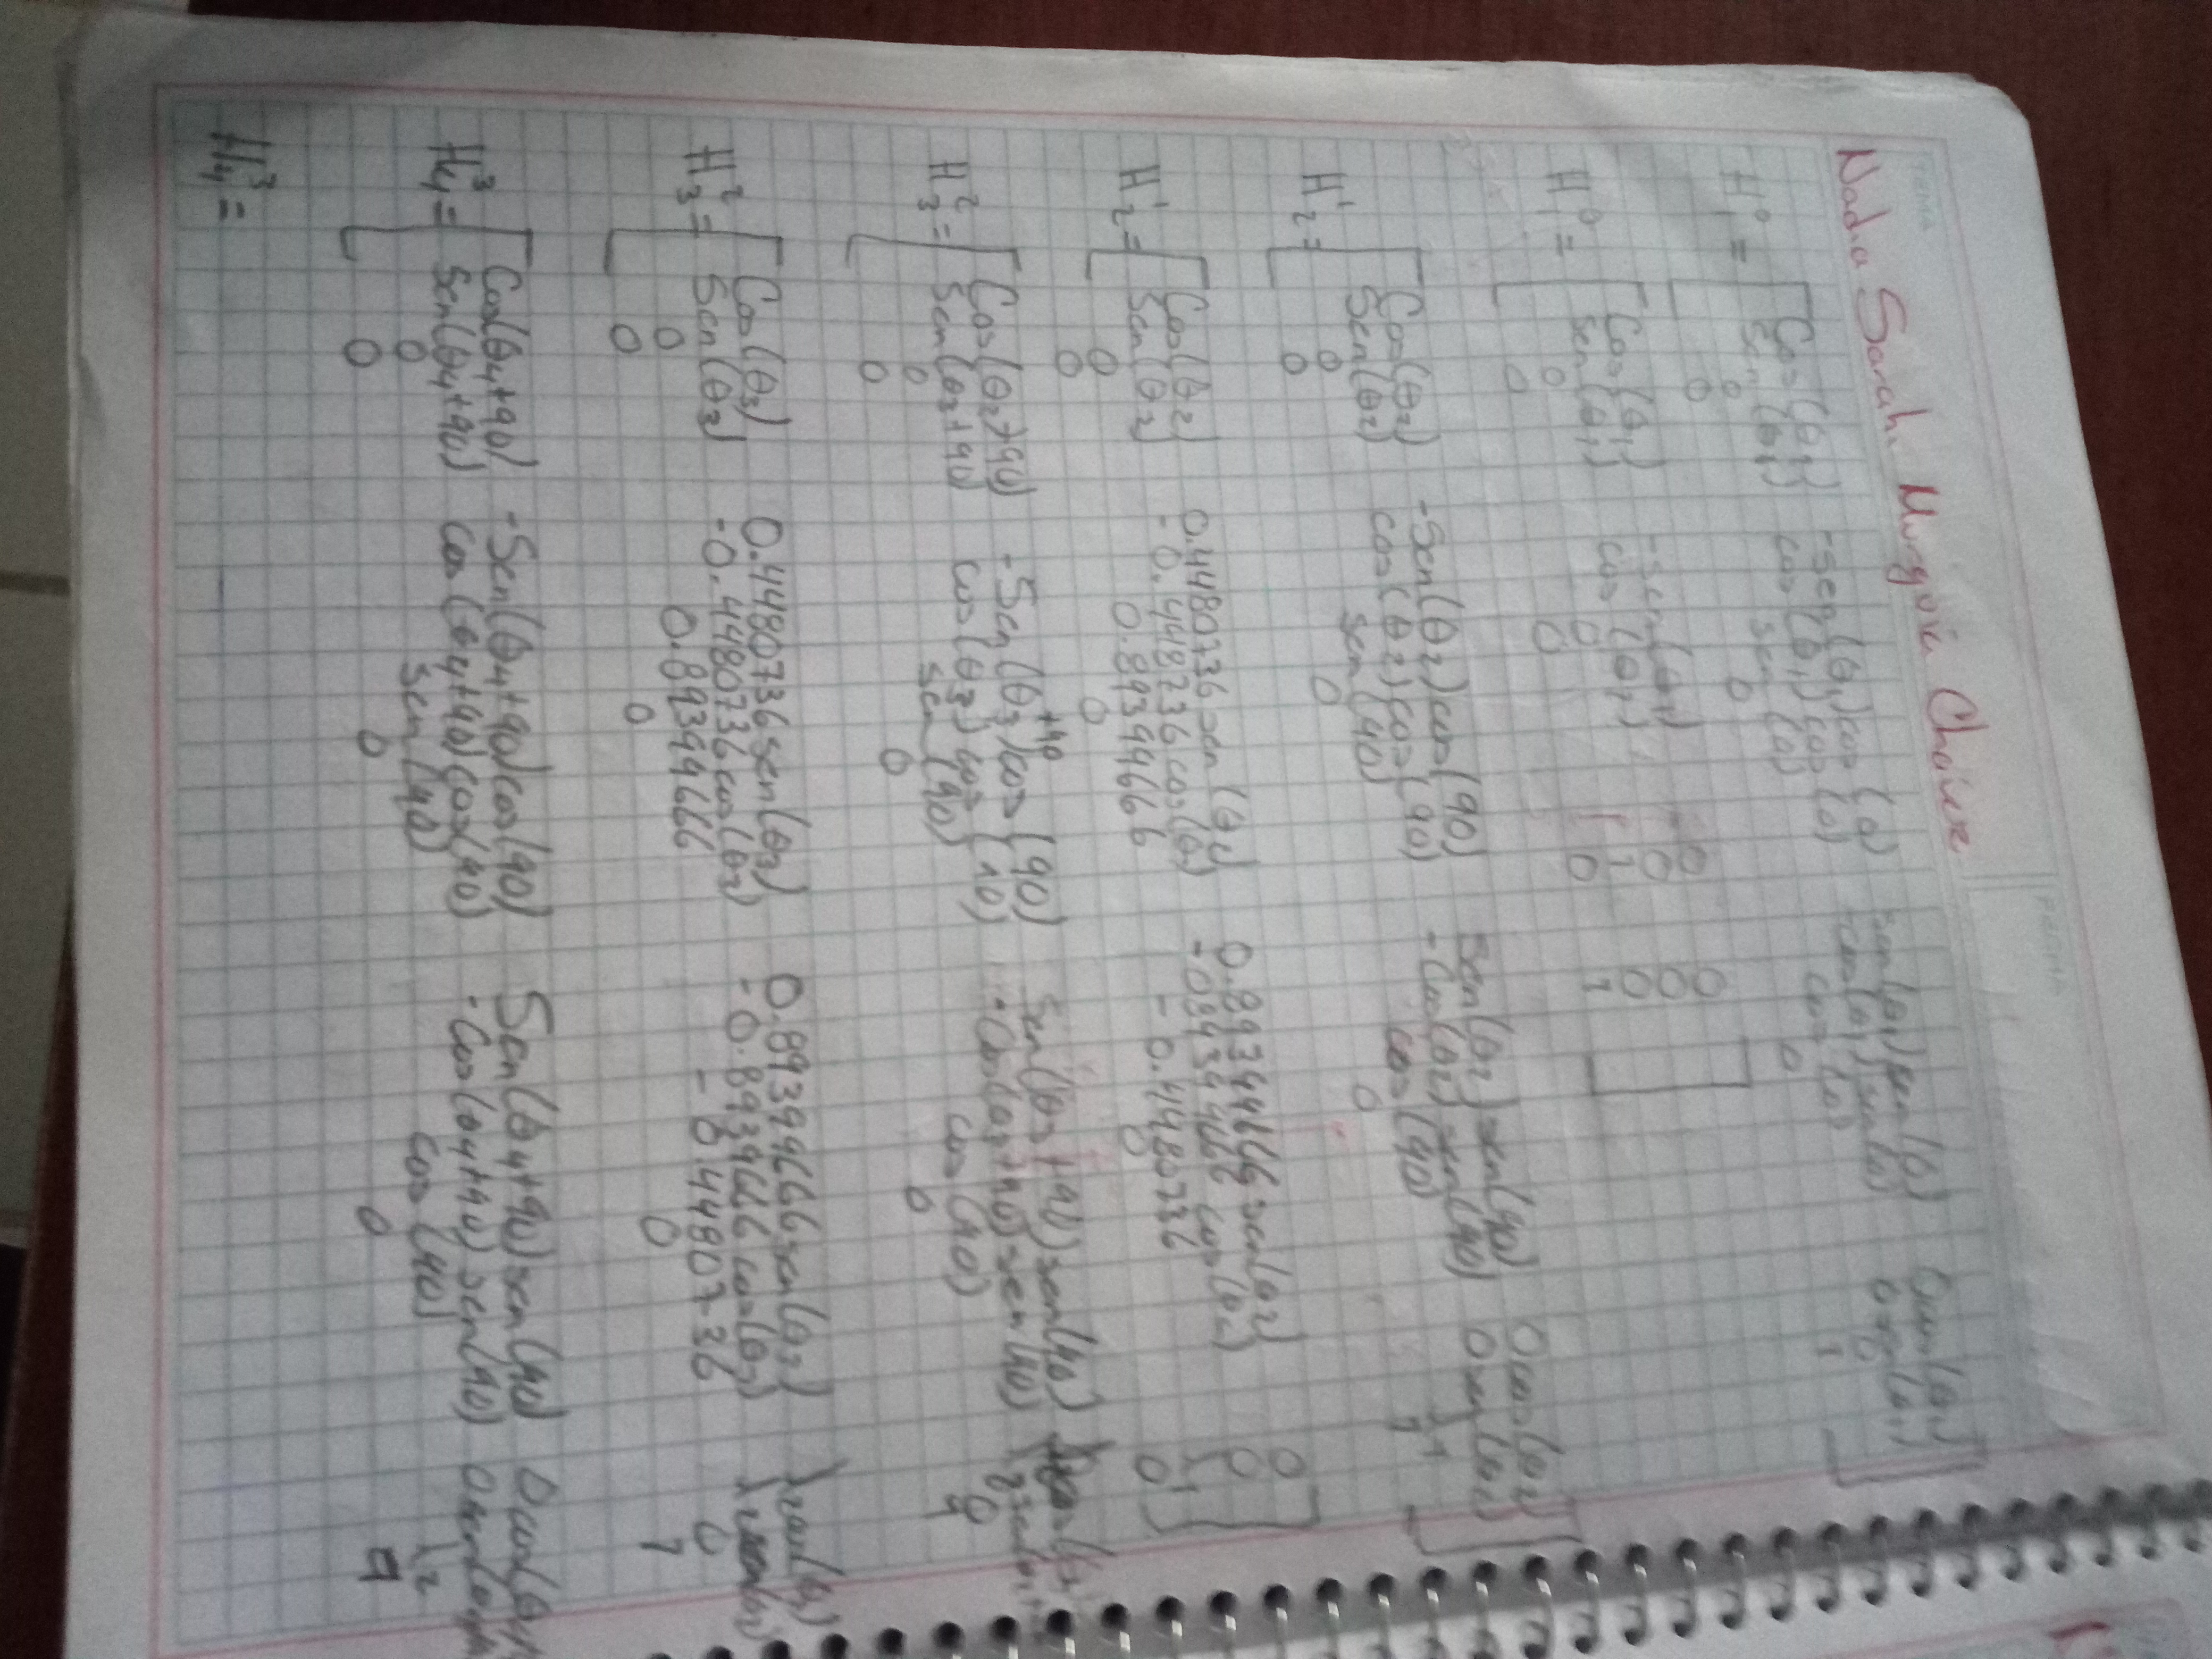 TEMA
FECHA
Nadia Sarah. Murguia Chavez
H⁰₁ = [ Cos(θ₁) -sen(θ₁)cos(0) sen(θ₁)sen(0) 0cos(θ₁)
Sen(θ₁) cos(θ₁)cos(0) -cos(θ₁)sen(0) 0sen(θ₁)
0 sen(0) cos(0) 0
0 0 0 1 ]
H⁰₁ = [ Cos(θ₁) -sen(θ₁) 0 0
Sen(θ₁) cos(θ₁) 0 0
0 0 1 0
0 0 0 1 ]
H¹₂ = [ Cos(θ₂) -Sen(θ₂)cos(90) Sen(θ₂)sen(90) 0cos(θ₂)
Sen(θ₂) cos(θ₂)cos(90) -Cos(θ₂)sen(90) 0sen(θ₂)
0 sen(90) cos(90) λ₁
0 0 0 1 ]
H¹₂ = [ Cos(θ₂) 0.4480736sen(θ₂) 0.89399666sen(θ₂) 0
Sen(θ₂) -0.448736cos(θ₂) -0.89399666cos(θ₂) 0
0 0.89399666 -0.4480736 λ₁
0 0 0 0 ]
H²₃ = [ Cos(θ₂+90) -Sen(θ₃+90)cos(90) Sen(θ₃+90)sen(90)
Sen(θ₃+90) cos(θ₃)cos(90) -Cos(θ₃+90)sen(90)
0 sen(90) cos(90) 0
0 0 0 1
H²₃ = [ Cos(θ₃) 0.4480736sen(θ₃) 0.89399666sen(θ₃) λ₂cos(θ₃)
Sen(θ₃) -0.4480736cos(θ₃) -0.8939666cos(θ₃) λ₂sen(θ₃)
0 0.89399666 -0.4480736 0
0 0 0 1
H³₄ = [ Cos(θ₄+90) -Sen(θ₄+90)cos(90) Sen(θ₄+90)sen(90) 0cos(θ₄+
Sen(θ₄+90) cos(θ₄+90)cos(90) -Cos(θ₄+90)sen(90) 0sen(θ₄+
0 sen(90) cos(90) λ₂
0 0 0 1
H³₄ =